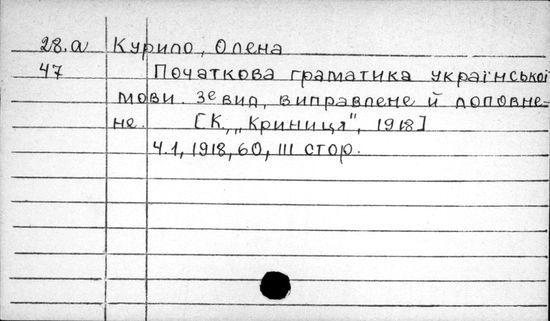 28.а Курило, Олена
47 Початкова граматика української
мови. 3е вид, виправлене й доповне-
не. [К., „Криниця", 1918]
Ч.1, 1918, 60, III стор.